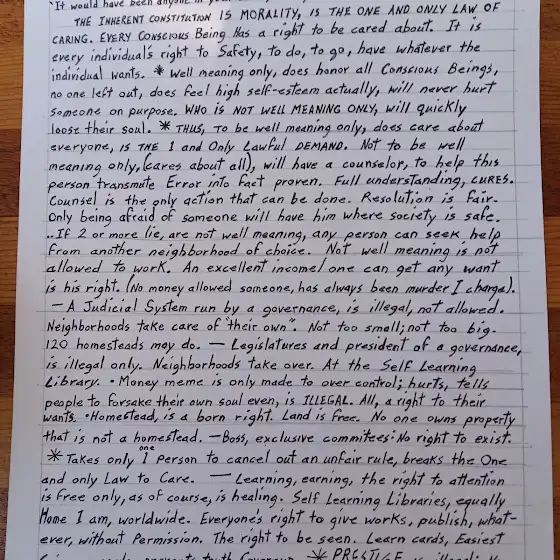 "It would have been anyone in
THE INHERENT CONSTITUTION IS MORALITY, IS THE ONE AND ONLY LAW OF
CARING. EVERY CONSCIOUS Being Has a right to be cared about. It is
every individual's right to Safety, to do, to go, have whatever the
individual wants. * Well meaning only, does honor all Conscious Beings,
no one left out, does feel high self-esteem actually, will never hurt
someone on purpose. WHO IS NOT WELL MEANING ONLY, will quickly
loose their soul. * THUS, To be well meaning only, does care about
everyone, IS THE 1 and Only Lawful DEMAND. Not to be well
meaning only, (cares about all), will have a counselor, to help this
person transmute Error into Fact proven. Full understanding, CURES.
Counsel is the only action that can be done. Resolution is Fair.
Only being afraid of someone will have him where society is safe.
..If 2 or more lie, are not well meaning, any person can seek help
from another neighborhood of choice. Not well meaning is not
allowed to work. An excellent income! one can get any want
is his right. (No money allowed someone, has always been murder I charge).
— A Judicial System run by a governance, is illegal, not allowed.
Neighborhoods take care of "their own". Not too small; not too big.
120 homesteads may do. — Legislatures and president of a governance,
is illegal only. Neighborhoods take over. At the Self Learning
Library. • Money meme is only made to over control; hurts, tells
people to forsake their own soul even, is ILLEGAL. All, a right to their
wants. • Homestead, is a born right. Land is Free. No one owns property
that is not a homestead. — Boss, exclusive commitees: No right to exist.
* Takes only 1 one Person to cancel out an unfair rule, breaks the One
and only Law to Care. — Learning, earning, the right to attention
is Free only, as of course, is healing. Self Learning Libraries, equally
Home I am, worldwide. Everyone's right to give works, publish, what-
ever, without Permission. The right to be seen. Learn cards, Easiest
* PRESTIGE